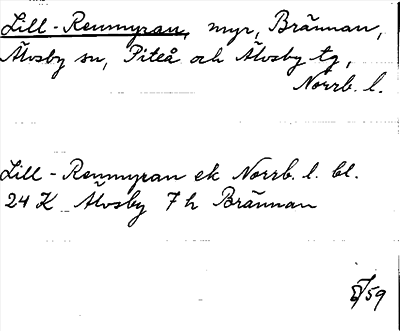 Lill-Renmyran, myr, Brännan,
Älvsby sn, Piteå och Älvsby tg,
Norrb. l.
Lill-Renmyran ek Norrb. l. bl.
24 K Älvsby 7 h Brännan
/59